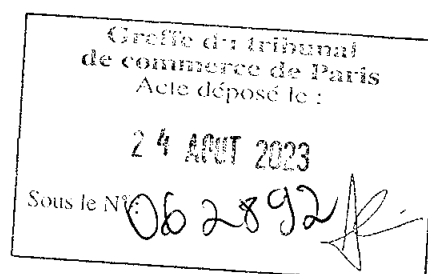 Greffe du tribunal
de commerce de Paris
Acte déposé le :
24 AOUT 2023
Sous le N°: 062892